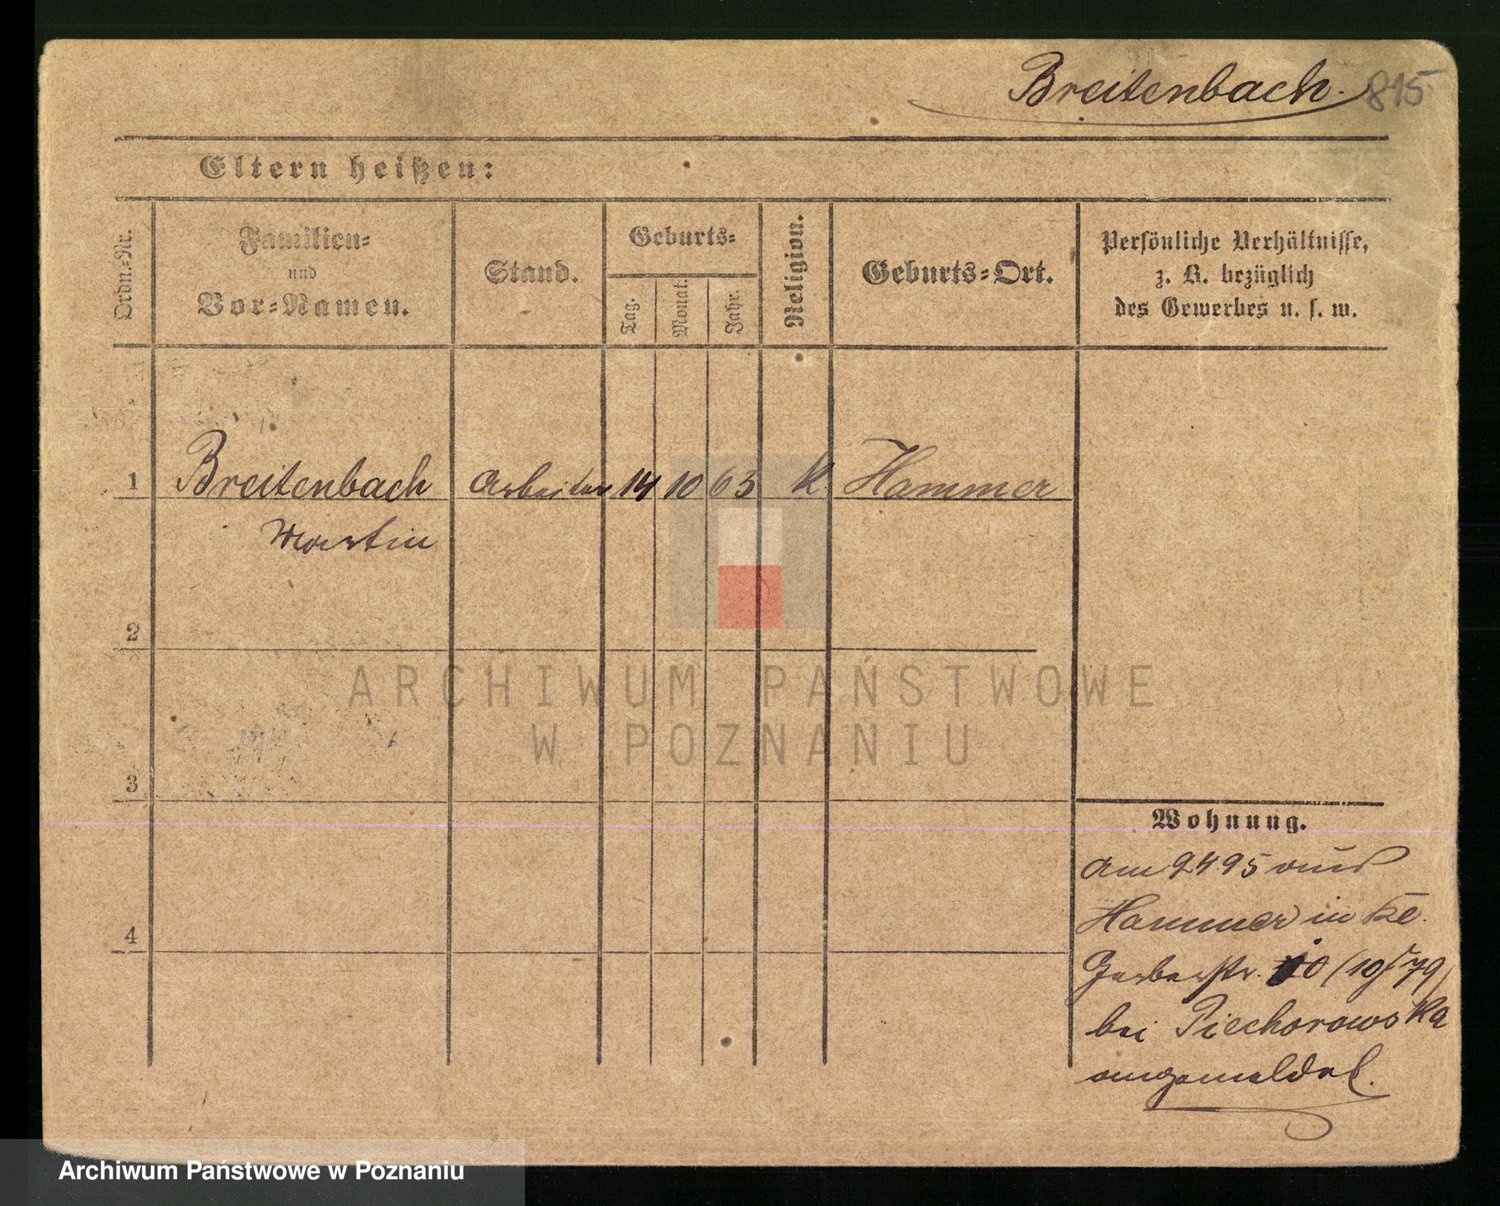 Breitenbach. 815
Eltern heißen:
Ordn.-Nr.
Familien-
und
Vor-Namen.
Stand.
Geburts-
Tag.
Monat.
Jahr.
Religion.
Geburts-Ort.
Persönliche Verhältnisse,
z. B. bezüglich
des Gewerbes u. s. w.
1 Breitenbach Arbeiter 14 10 63 K Hammer
Martin
2
3
4
Wohnung.
Am 9 4 95 aus
Hammer in Kl.
Gerberstr. 10 (10/79)
bei Piechorowska
angemeldet.
ARCHIWUM PAŃSTWOWE
W POZNANIU
Archiwum Państwowe w Poznaniu